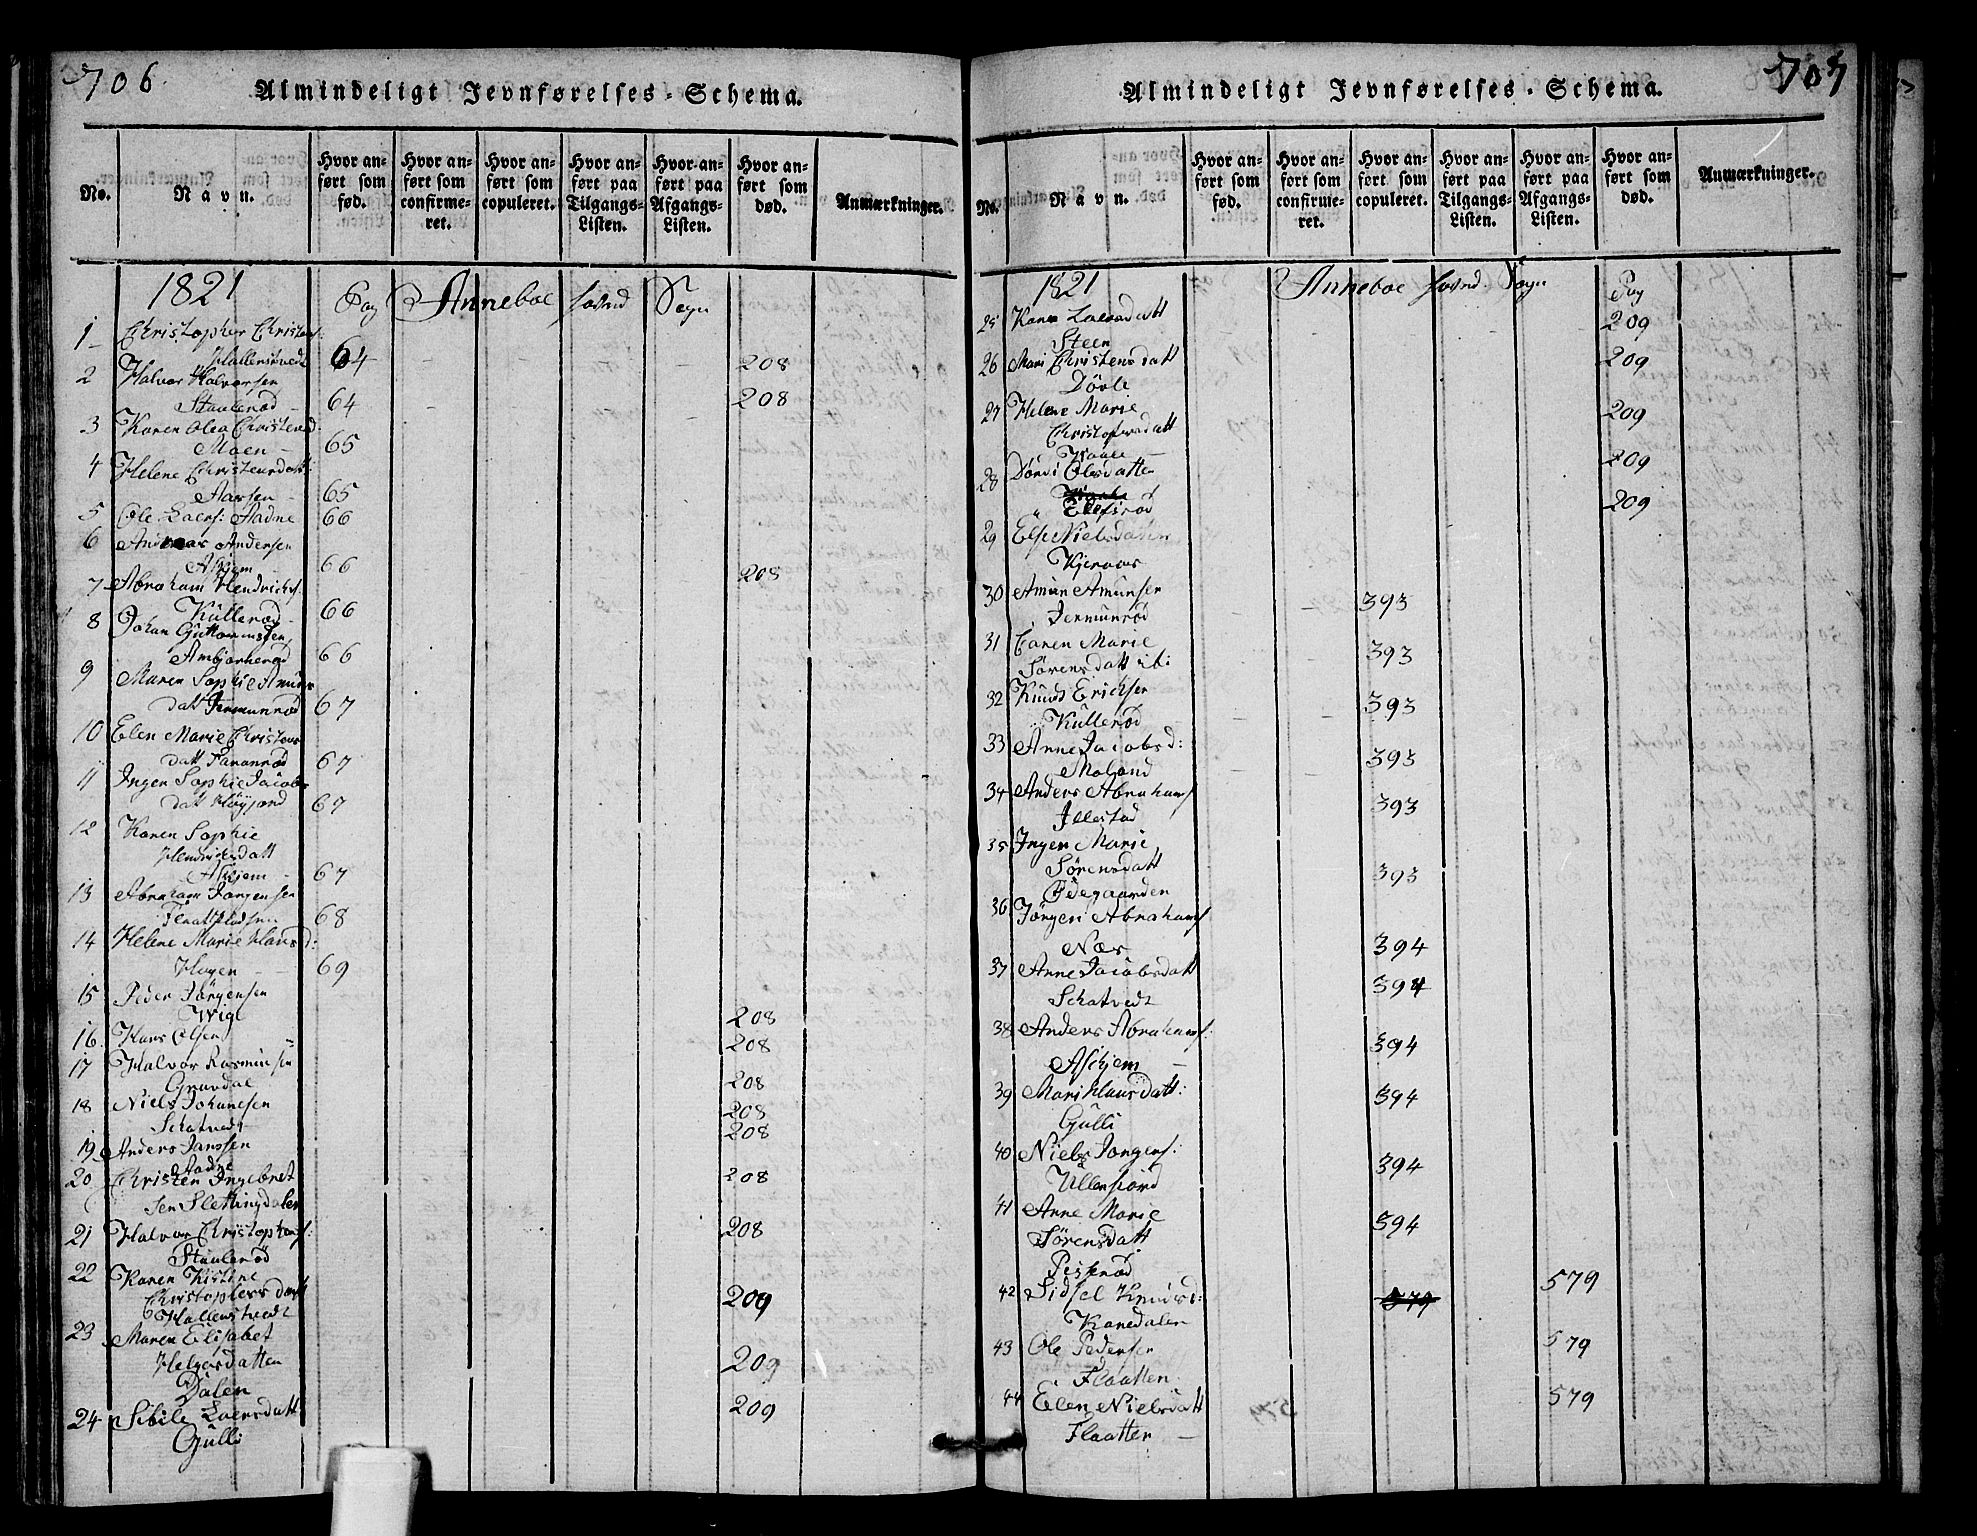 706
Almindeligt Jevnførelses-Schema.
No.
Navn.
Hvor anført som fød.
Hvor anført som confirmeret.
Hvor anført som copuleret.
Hvor anført paa Tilgangs-Listen.
Hvor anført paa Afgangs-Listen.
Hvor anført som død.
Anmærkninger.
1821 Pag Anneboe Sogn
1 Christopher Christens:
Hallenstvedt 64 208
2 Halvor Halvorsen
Staulerød 64 208
3 Karen Olea Christensd:
Moen 65
4 Helene Christensdatt:
Aarsen 65
5 Ole Laers: Aadne 66
6 Andreas Andersen
Askjem 66 208
7 Abraham Hendrichs.
Kullerød 66
8 Johan Guttormsen
Ambjørnerød 66
9 Maren Sophie Amuns
datt Jermunrød 67
10 Elen Marie Christens
datt Faranrød 67
11 Ingen Sophie Jacobs
datt Høyjord 67
12 Karen Sophie
Hendrichsdatt
Askjem 67
13 Abraham Jørgensen
Flaattpladsen 68
14 Helene Marie Hansd:
Hagen 69
15 Peder Jørgensen
Wige 208
16 Hans Olsen 208
17 Halvor Rasmunsen
Gravdal 208
18 Niels Johansen 208
Schatvedt 208
19 Anders Janssen
Aadne
20 Christen Ingebret 208
sen Slettingdalen
21 Halvor Christophers: 208
Staulerød
22 Karen Kistine
Christophersdatt 209
Hallenstvedt
23 Maren Elisabet
Helgesdatten 209
Dalen
24 Sibile Laersdatt 209
Gulli
707
Almindeligt Jevnførelses-Schema.
No.
Navn.
Hvor anført som fød.
Hvor anført som confirmeret.
Hvor anført som copuleret.
Hvor anført paa Tilgangs-Listen.
Hvor anført paa Afgangs-Listen.
Hvor anført som død.
Anmærkninger.
1821 Anneboe Sogn Pag
25 Karen Laersdatt 209
Steen
26 Mari Christensdatt 209
Døvle
27 Helene Marie 209
Christophersdatt
28 Dorthi Olesdatten 209
Elefsrød 209
29 Else Nielsdatten
Kjeraas
30 Amun Amunsen 393
Jermunrød
31 Caren Marie 393
Sørensdatt ib:
32 Knud Erichsen 393
Kullerød
33 Anne Jacobsd: 393
Moland
34 Anders Abrahams 393
Illestad
35 Ingen Marie
Sørensdatt 393
Ødegaarden
36 Jørgen Abrahams
Nær 394
37 Anne Jacobsdatt 394
Schatvedt
38 Anders Abrahams: 394
Askjem
39 Mari Hansdatt: 394
Gulli
40 Niels Jørgens: 394
Ullensiord
41 Anne Marie
Sørensdatt 394
Pisserød
42 Sidsel Knudsd: 579 579
Kanedalen
43 Ole Pedersen 579
Flaatten
44 Elen Nielsdatt 579
Flaatten